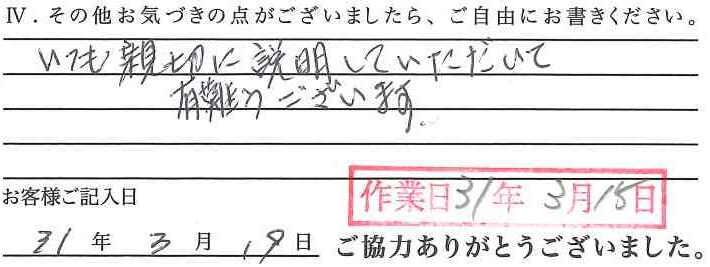 Ⅳ．その他お気づきの点がございましたら、ご自由にお書きください。
いつも親切に説明していただいて
有難うございます。
お客様ご記入日
作業日31年 3月15日
31年 3月19日 ご協力ありがとうございました。